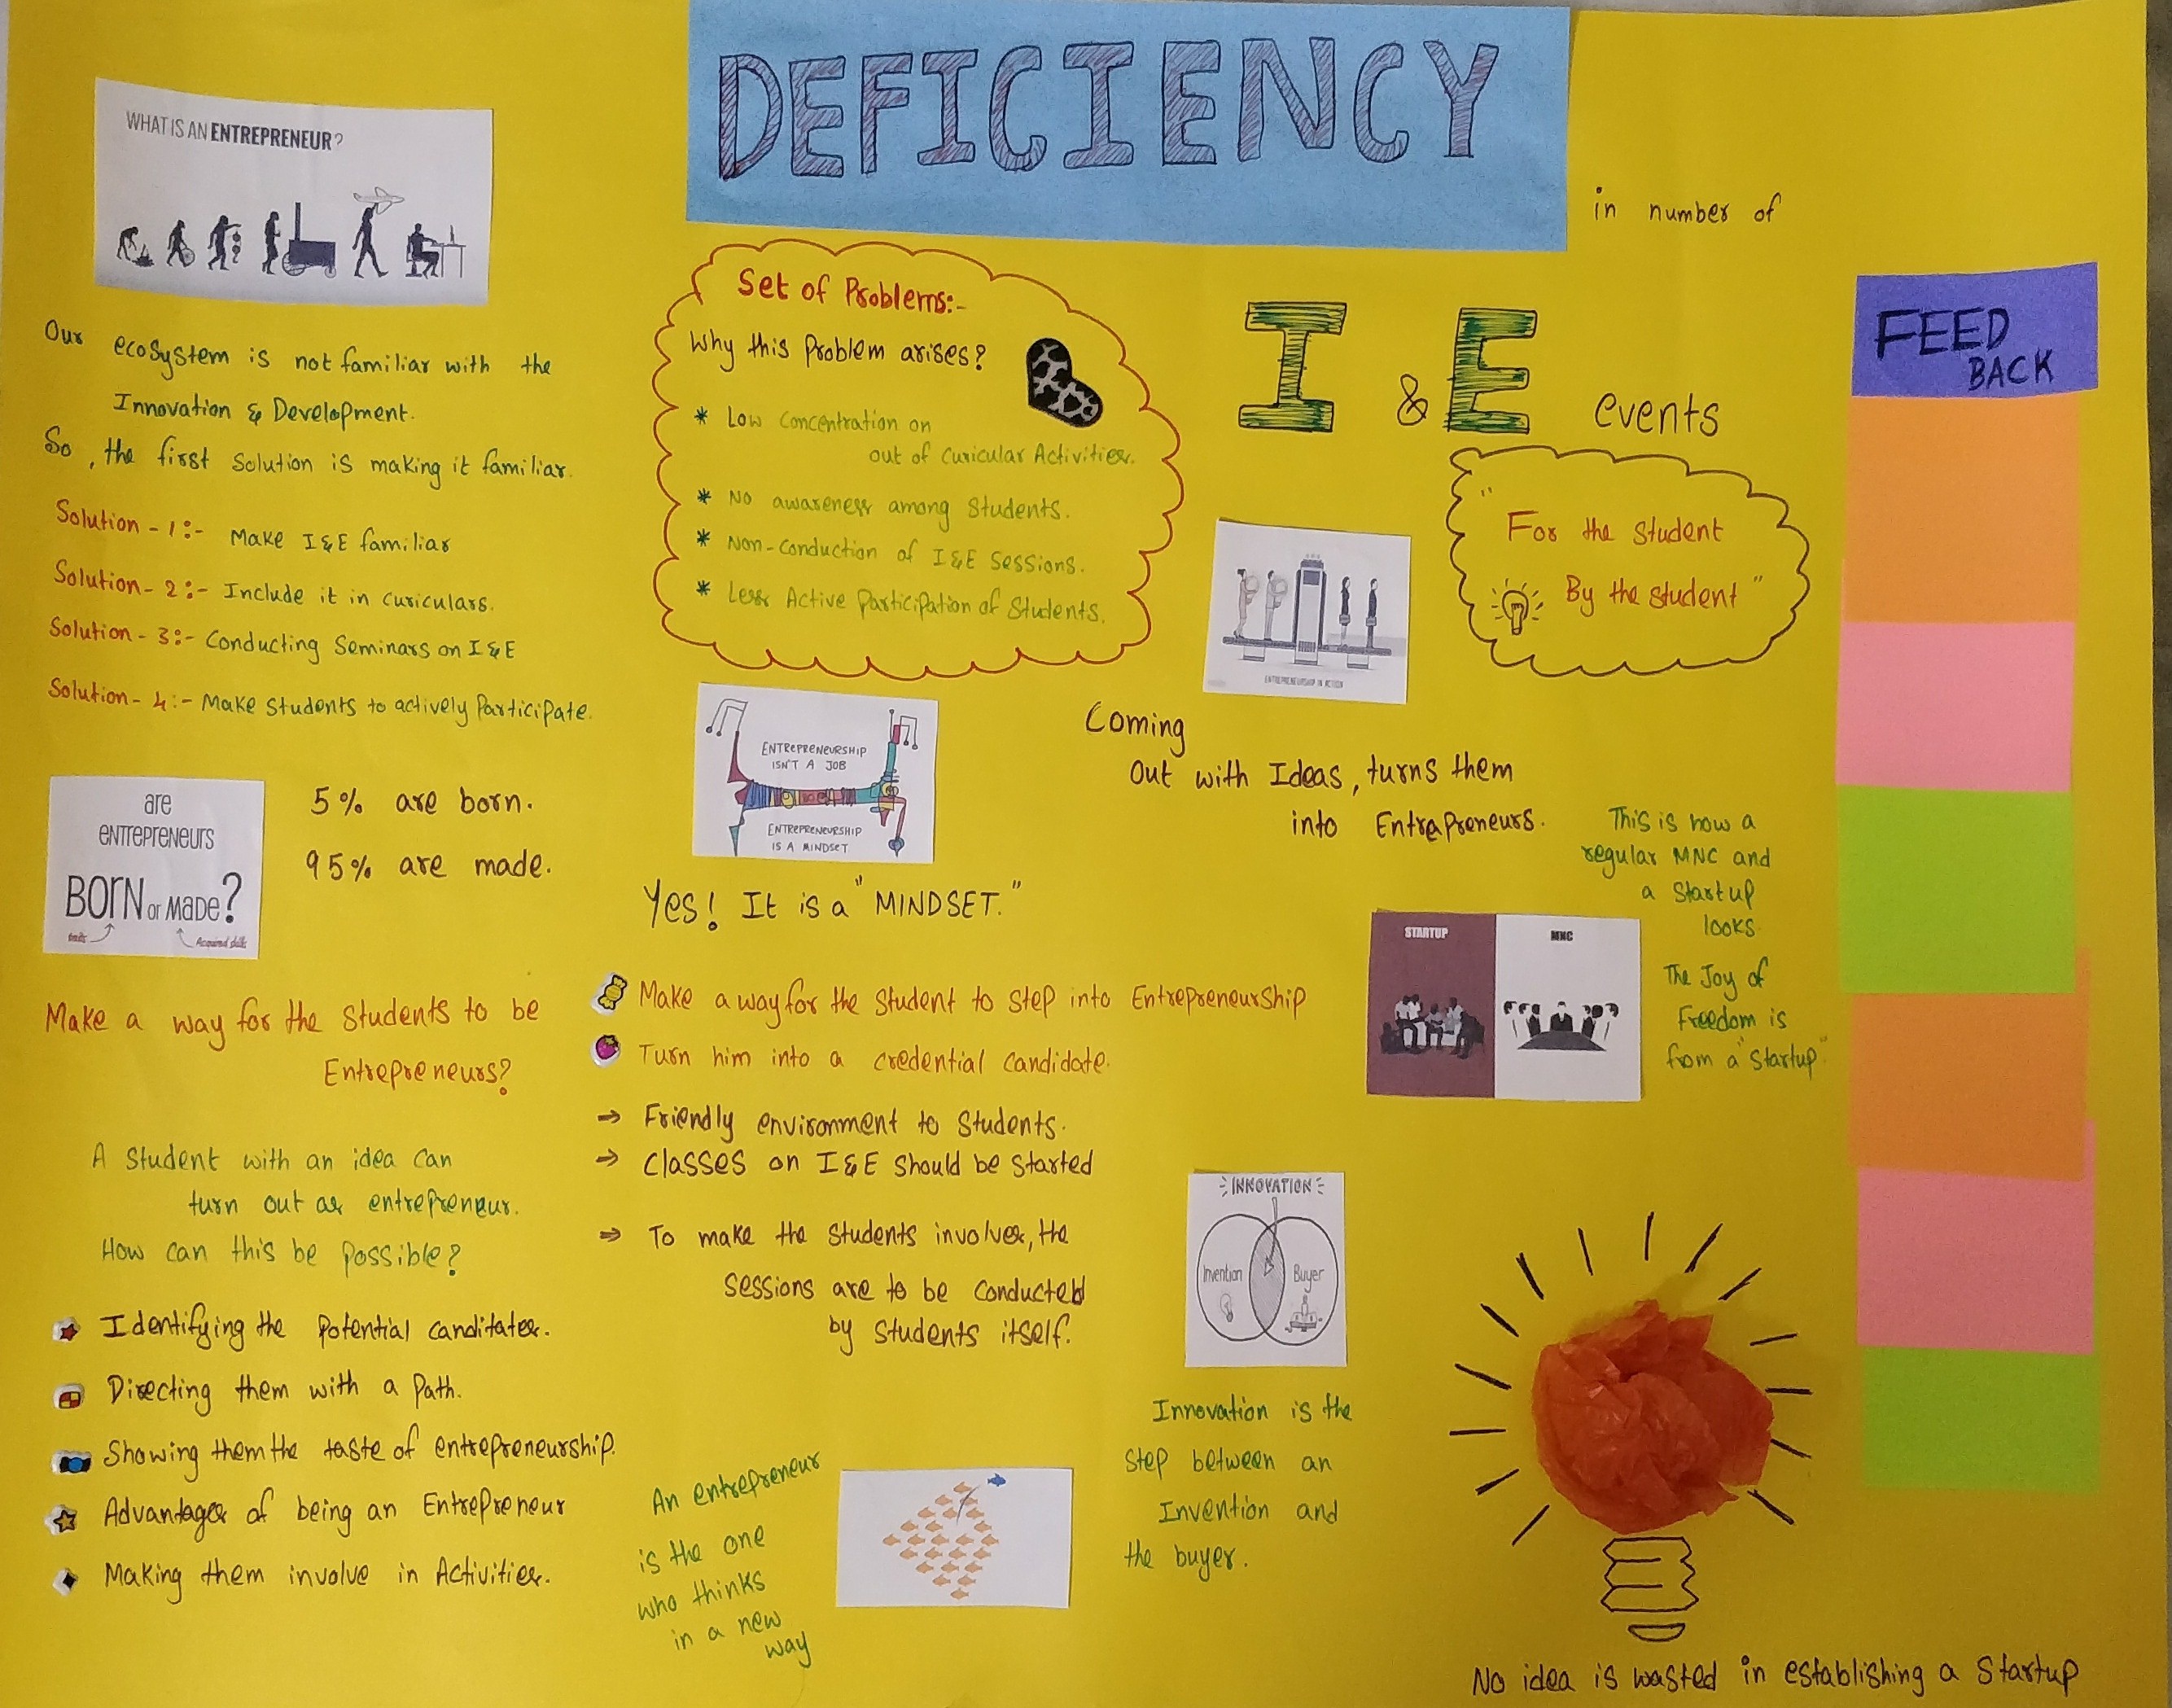 DEFICIENCY
in number of
I & E events
WHAT IS AN ENTREPRENEUR?
Our ecosystem is not familiar with the
Innovation & Development.
So, the first solution is making it familiar.
Solution - 1:- Make I&E familiar
Solution - 2:- Include it in curiculars.
Solution - 3:- Conducting Seminars on I&E
Solution - 4:- Make students to actively Participate.
are
ENTREPRENEURS
BORN or MADE?
traits
Acquired skills
5% are born.
95% are made.
Make a way for the students to be
Entrepreneurs?
A student with an idea can
turn out as entrepreneur.
How can this be possible?
Identifying the Potential canditates.
Directing them with a Path.
Showing them the taste of entrepreneurship.
Advantages of being an Entrepreneur
Making them involve in Activities.
Set of Problems:-
Why this Problem arises?
* Low Concentration on
out of Curicular Activities.
* No awareness among Students.
* Non-Conduction of I&E Sessions.
* Less Active Participation of Students.
ENTREPRENEURSHIP
ISN'T A JOB
ENTREPRENEURSHIP
IS A MINDSET
Yes! It is a "MINDSET."
Make a way for the student to step into Entrepreneurship
Turn him into a credential candidate.
⇒ Friendly environment to Students.
⇒ Classes on I&E should be started
⇒ To make the students involves, the
sessions are to be conducted
by students itself.
An entrepreneur
is the one
who thinks
in a new
way
"For the Student
By the student"
ENTREPRENEURSHIP IN ACTION
Coming
Out with Ideas, turns them
into Entrepreneurs.
This is how a
regular MNC and
a Startup
looks
STARTUP
MNC
The Joy of
Freedom is
from a "Startup"
INNOVATION
Invention
Buyer
Innovation is the
step between an
Invention and
the buyer.
No idea is wasted in establishing a Startup
FEED
BACK